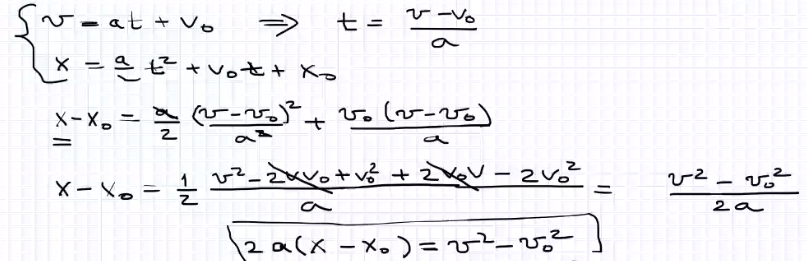 v = at + v₀ ⇒ t = (v - v₀)/a
x = a/2 t² + v₀t + x₀
x - x₀ = a/2 (v - v₀)²/a² + v₀(v - v₀)/a
x - x₀ = 1/2 (v² - 2vv₀ + v₀² + 2v₀v - 2v₀²)/a = (v² - v₀²)/2a
2a(x - x₀) = v² - v₀²